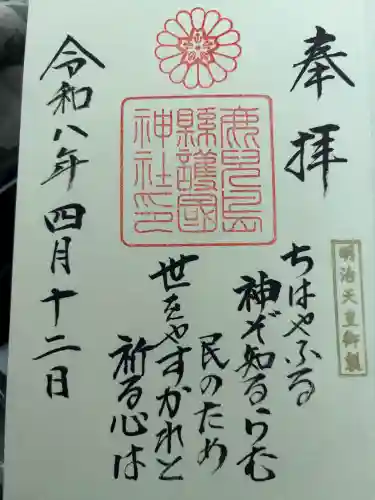 奉拝
明治天皇御製
ちはやふる
神ぞ知るらむ
民のため
世をやすかれと
祈る心は
鹿児島
縣護國
神社印
令和八年四月十二日